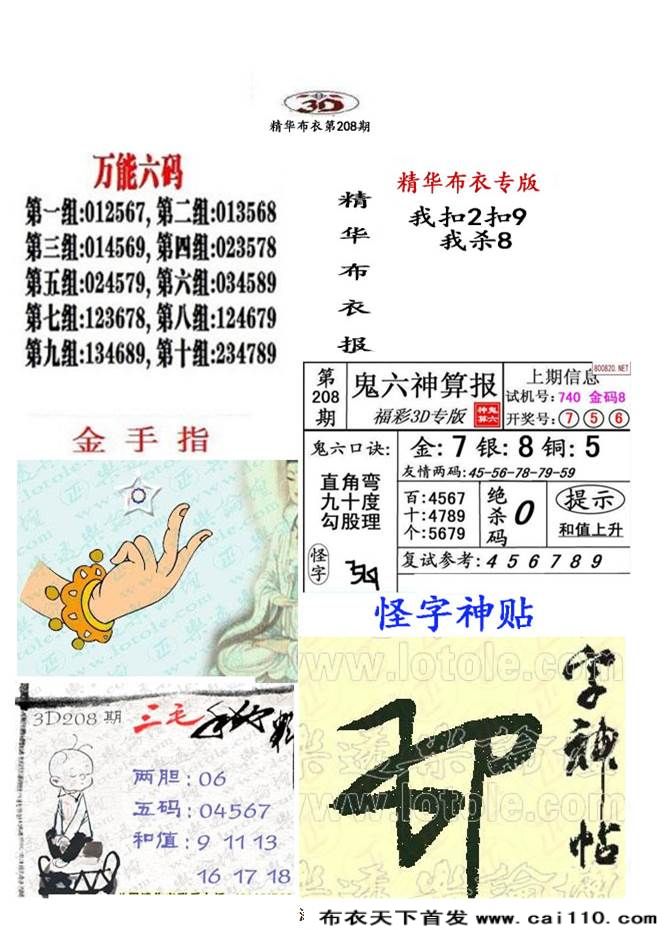 3D
精华布衣第208期
万能六码
第一组:012567, 第二组:013568
第三组:014569, 第四组:023578
第五组:024579, 第六组:034589
第七组:123678, 第八组:124679
第九组:134689, 第十组:234789
精华布衣报
精华布衣专版
我扣2扣9
我杀8
800820.NET
第208期
鬼六神算报
福彩3D专版
神鬼算六
上期信息
试机号: 740 金码8
开奖号: 7 5 6
鬼六口诀:
直角弯
九十度
勾股理
怪字
金: 7 银: 8 铜: 5
友情两码:45-56-78-79-59
百:4567
十:4789
个:5679
绝杀码 0
提示
和值上升
复试参考: 4 5 6 7 8 9
金手指
怪字神贴
www.lotole.com
字神帖
www.lotole.com
3D208 期
三毛
两胆: 06
五码: 04567
和值: 9 11 13
16 17 18
布衣天下首发 www.cai110.com